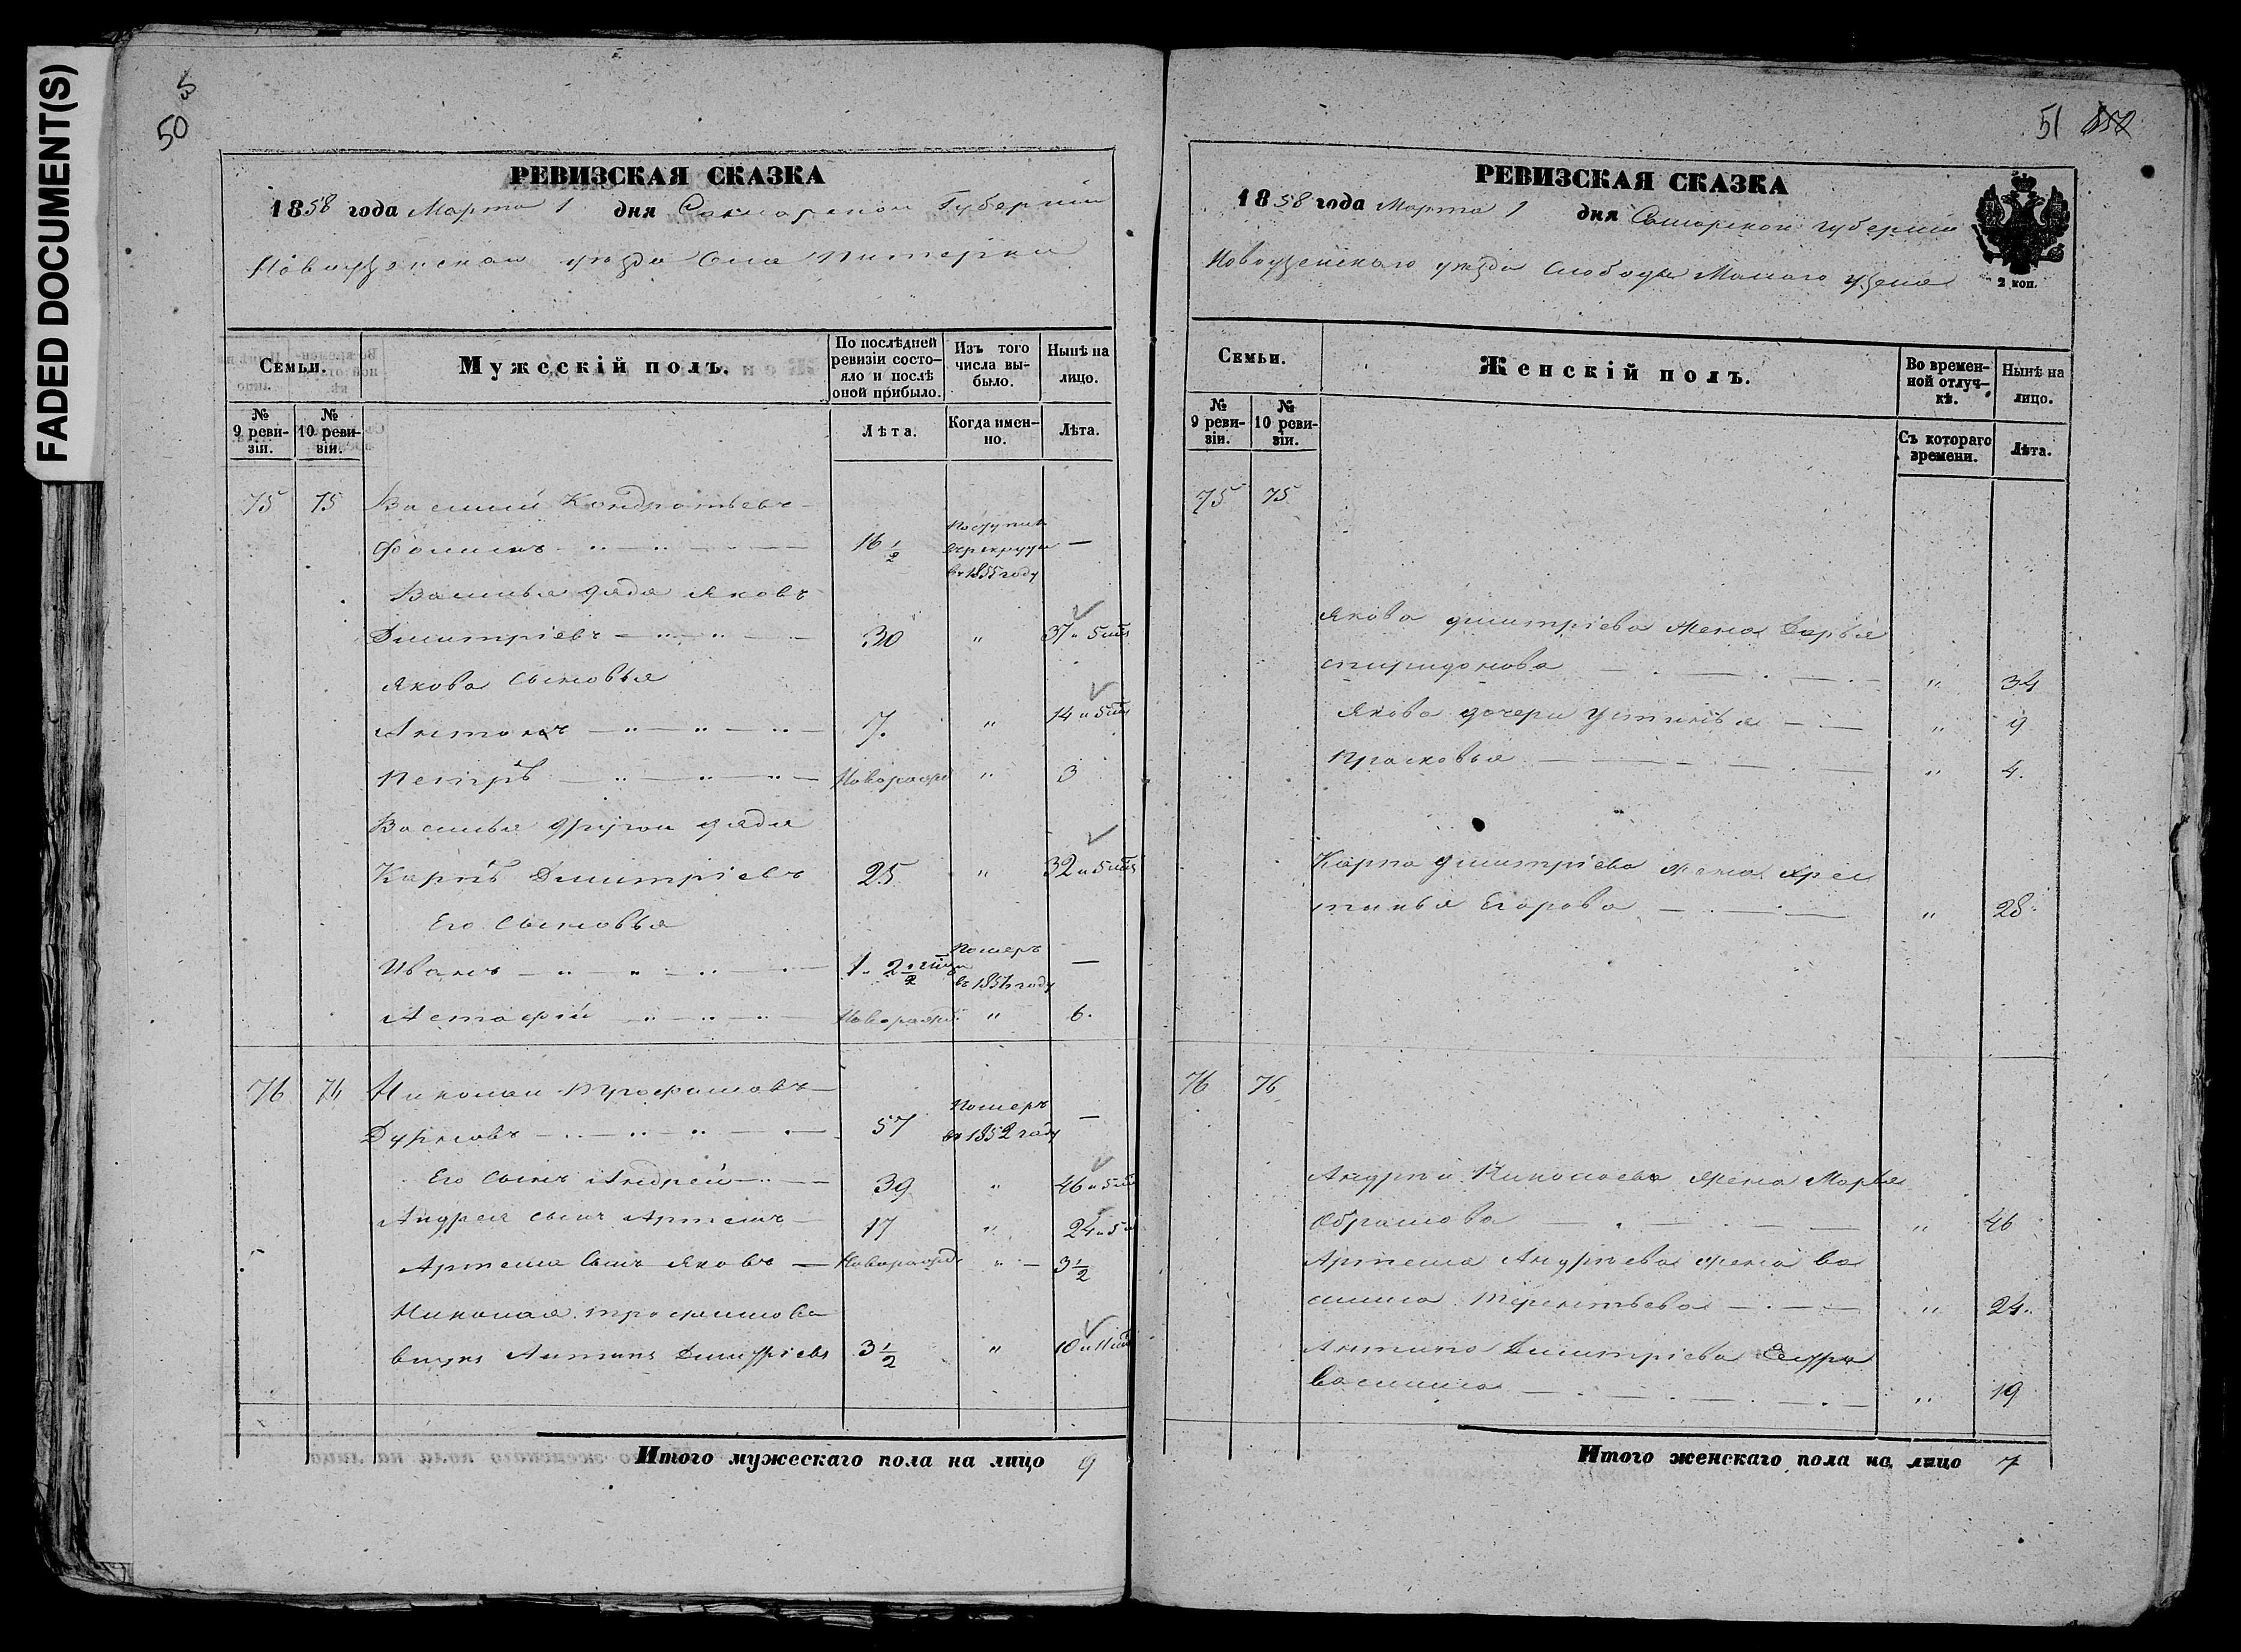 FADED DOCUMENT(S)
50
РЕВИЗСКАЯ СКАЗКА
1858 года Марта 1 дня Самарской Губернии
Новоузенскаго уезда Села Питерки
Семьи.
Мужескій полъ.
По послѣдней ревизіи состояло и послѣ оной прибыло.
Изъ того числа выбыло.
Нынѣ на лицо.
№ 9 ревизіи.
№ 10 ревизіи.
Лѣта.
Когда именно.
Лѣта.
75 75 Василий Кондратьевъ
Фоминъ 16 1/2 Поступил в рекруты в 1855 году —
Василья дядя Яковъ
Димитріевъ 30 " 37 и 5 мѣс
Якова Сыновья
Антонъ 7. " 14 и 5 мѣс
Петръ Новорожд " 3
Василья другой дядя
Карпъ Димитріевъ 25 " 32 и 5 мѣс
Его Сыновья
Иванъ Померъ —
Астафій Новорожд. " 6.
76 76 Николай Трофимовъ
Дурновъ 57 Померъ въ 1852 году —
Его Сынъ Андрей 39 " 46 и 5
Андрея сынъ Артемъ 17 " 24 и 5
Артема Сынъ Яковъ Новорожд. " 3 1/2
Николая Трофимова
внукъ Антипъ Димитріевъ 3 1/2 " 10 и 11
Итого мужескаго пола на лицо 9
51
РЕВИЗСКАЯ СКАЗКА
1858 года Марта 1 дня Самарской губернии
Новоузенскаго уезда Слободы Малаго Узеня
2 коп.
Семьи.
Женскій полъ.
Во временной отлучкѣ.
Нынѣ на лицо.
№ 9 ревизіи.
№ 10 ревизіи.
Съ котораго времени.
Лѣта.
75 75
Якова Димитріева жена Дарья
Спиридонова " 34
Якова дочери Устинья " 9
Прасковья " 4.
Карпа Димитріева жена Хрес
тинья Егорова " 28.
76 76
Андрея Николаева жена Марья
Абрамова " 46
Артема Андреева жена Ва
силиса Терентьева " 24.
Антипа Димитріева
Василиса " 19
Итого женскаго пола на лицо 7